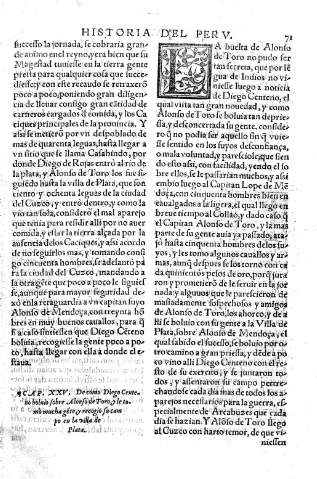 HISTORIA DEL PERV.
71
successo la jornada, se cobraria gran-
de animo en el reyno, y era bien que su
Magestad tuviesse en la tierra gente
presta para qualquier cosa que succe-
diesse: y con este recaudo se retraxerõ
poco a poco, poniendo gran diligen-
cia de llevar consigo gran cãtidad de
carneros cargados d̃ comida, y los Ca
ciques principales de la provincia. Y
assi se metierõ por vn despoblado de
mas de quarenta leguas, hasta llegar a
vn sitio que se llama Casabindo, por
donde Diego de Rojas entró al rio de
la plata, y Alonso de Toro los fue si-
guiẽdo hasta la villa de Plata, que son
ciento y ochenta leguas de la ciudad
del Cuzco, y entró dentro, y como la
vio tan sola, consideró el mal aparejo
que tenia para residir alli por no auer
comida, y estar la tierra alçada por la
ausencia de los Caciques, y assi acordó
de no seguir los mas, y tomando consi
go cincuenta hombres, se adelantó pa
ra la ciudad del Cuzco, mandando a
la otra gẽte que poco a poco le siguies
se, aunque para mayor seguridad de-
xó en la retaguardia a vn capitan suyo
Alonso de Mendoça, con treynta hõ
bres en muy buenos cavallos, para q̃
si a caso sintiesse que Diego Cẽteno
boluia, recogiesse la gente poco a po-
co, hasta llegar con ella a donde el e-
stava.
¶ CAP. XXV. De como Diego Cente-
no boluio sobre Alonso de Toro, y le to-
mó mucha gẽte, y recogio su cam
po en la villa de
Plata.
LA buelta de Alonso
de Toro no pudo ser
tan secreta, que por lẽ
gua de Indios no vi-
niesse luego a noticia
de Diego Centeno, el
qual vista tan gran nouedad, y como
Alonso de Toro se boluia tan depries-
sa, y desconcertada su gente, consideró
q̃ no podia ser aquello sin q̃ viniesse
sentido en los suyos desconfiança,
o mala voluntad, y pareciole que sien
do esto assi, con facilidad, yendo el so
bre ellos, se le passarian muchos, y assi
embio luego al Capitan Lope de Mẽ
doça, con cinquenta hombres bien en
caualgados a la ligera, el qual llegó en
breue tiempo al Collao, y dado caso q̃
el Capitan Alonso de Toro, y la mas
parte de su gente auia ya passado, ata-
jó hasta cinquenta hombres de los su-
yos, y les tomó algunos cauallos y ar-
mas, aunq̃ despues se los tornó con ca
da quinientos pesos de oro, porq̃ jura
ron y prometierõ de le servir en la jor
nada y algunos que le parescieron de
masiadamente sospechosos y amigos
de Alonso de Toro, los ahorcó, y de a
lli se boluio con su gente a la Villa de
Plata, sobre Alonso de Mendoça, el
qual sabido el sucesso, se boluio por o-
tro camino a gran priessa, y dẽde a po
co vino alli Diego Centeno con el res-
to de su exercito, y se juntaron to-
dos, y assentaron su campo pertre-
chandose cada dia mas de todos los a-
parejos necessarios para la guerra, es-
pecialmente de Arcabuzes que cada
dia se hazian. Y Alonso de Toro llegó
al Cuzco con harto temor, de que vi-
niessen